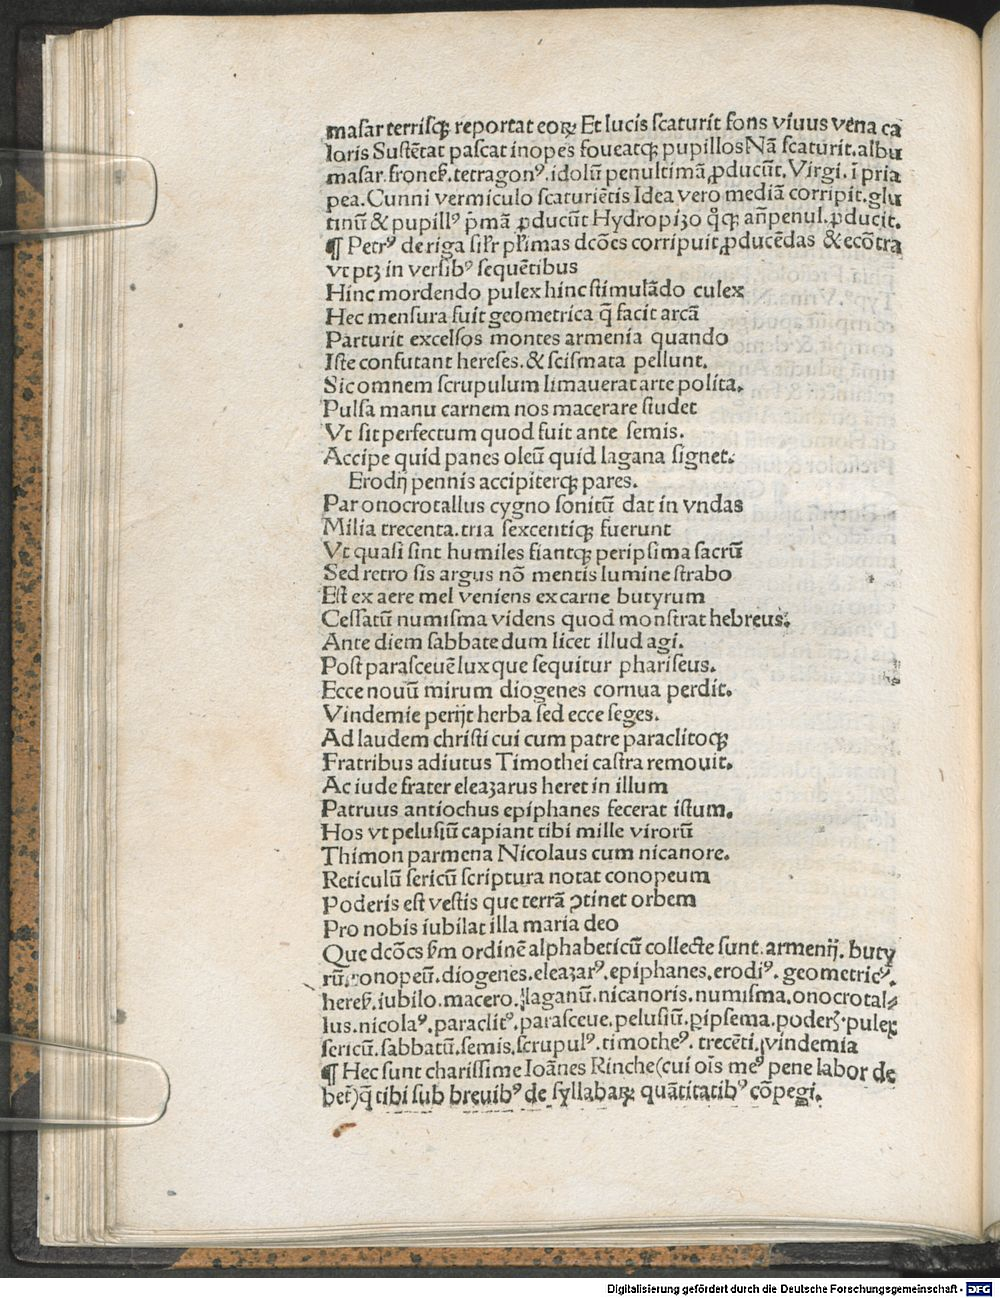 maſar terriſqꝫ reportat eoꝝ Et lucis ſcaturit fons viuus vena ca
loris Suſtētat paſcat inopes foueatqꝫ pupillos Nā ſcaturit.albu
maſar.froneſ.tetragonꝰ.idolū penultimā ꝓducūt.Virgi.ī pria
pea.Cunni vermiculo ſcaturiētis Idea vero mediā corripit.glu
tinū & pupillꝰ p̄mā ꝓducūt Hydropiʒo qͦqꝫ an̄penul.ꝓducit.
¶ Petrꝰ de riga ſilr̄ plr̄imas dcōes corripuit ꝓducēdas & ecōtra
vt ptꝫ in verſibꝰ ſequētibus
Hinc mordendo pulex hinc ſtimulādo culex
Hec menſura fuit geometrica q̄ facit arcā
Parturit excelſos montes armenia quando
Iſte confutant hereſes.& ſciſmata pellunt.
Sic omnem ſcrupulum limauerat arte polita.
Pulſa manu carnem nos macerare ſtudet
Vt ſit perfectum quod fuit ante ſemis.
Accipe quid panes oleū quid lagana ſignet.
Erodij pennis accipiterqꝫ pares.
Par onocrotallus cygno ſonitū dat in vndas
Milia trecenta.tria ſexcentiqꝫ fuerunt
Vt quaſi ſint humiles fiantqꝫ peripſima ſacrū
Sed retro ſis argus nō mentis lumine ſtrabo
Eſt ex aere mel veniens ex carne butyrum
Ceſſatū numiſma videns quod monſtrat hebreus.
Ante diem ſabbate dum licet illud agi.
Poſt paraſceuē lux que ſequitur phariſeus.
Ecce nouū mirum diogenes cornua perdit.
Vindemie perijt herba ſed ecce ſeges.
Ad laudem chriſti cui cum patre paraclitoqꝫ
Fratribus adiutus Timothei caſtra remouit.
Ac iude frater eleaʒarus heret in illum
Patruus antiochus epiphanes fecerat iſtum.
Hos vt peluſiū capiant tibi mille virorū
Thimon parmena Nicolaus cum nicanore.
Reticulū ſericū ſcriptura notat conopeum
Poderis eſt veſtis que terrā ꝯtinet orbem
Pro nobis iubilat illa maria deo
Que dcōes ſm̄ ordinē alphabeticū collecte ſunt.armenij.buty
rū.conopeū.diogenes.eleaʒarꝰ.epiphanes.erodiꝰ.geometricꝰ.
hereſ.iubilo.macero.laganū.nicanoris.numiſma.onocrotal⸗
lus.nicolaꝰ.paraclitꝰ.paraſceue.peluſiū.ꝑipſema.poderꝭ.pulex
ſericū.ſabbatū.ſemis.ſcrupulꝰ.timotheꝰ.trecēti.vindemia
¶ Hec ſunt chariſſime Ioānes Rinche(cui oīs meꝰ pene labor de
bet)q̄ tibi ſub breuibꝰ de ſyllabaꝝ quātitatibꝰ cōpegi.
Digitalisierung gefördert durch die Deutsche Forschungsgemeinschaft - DFG